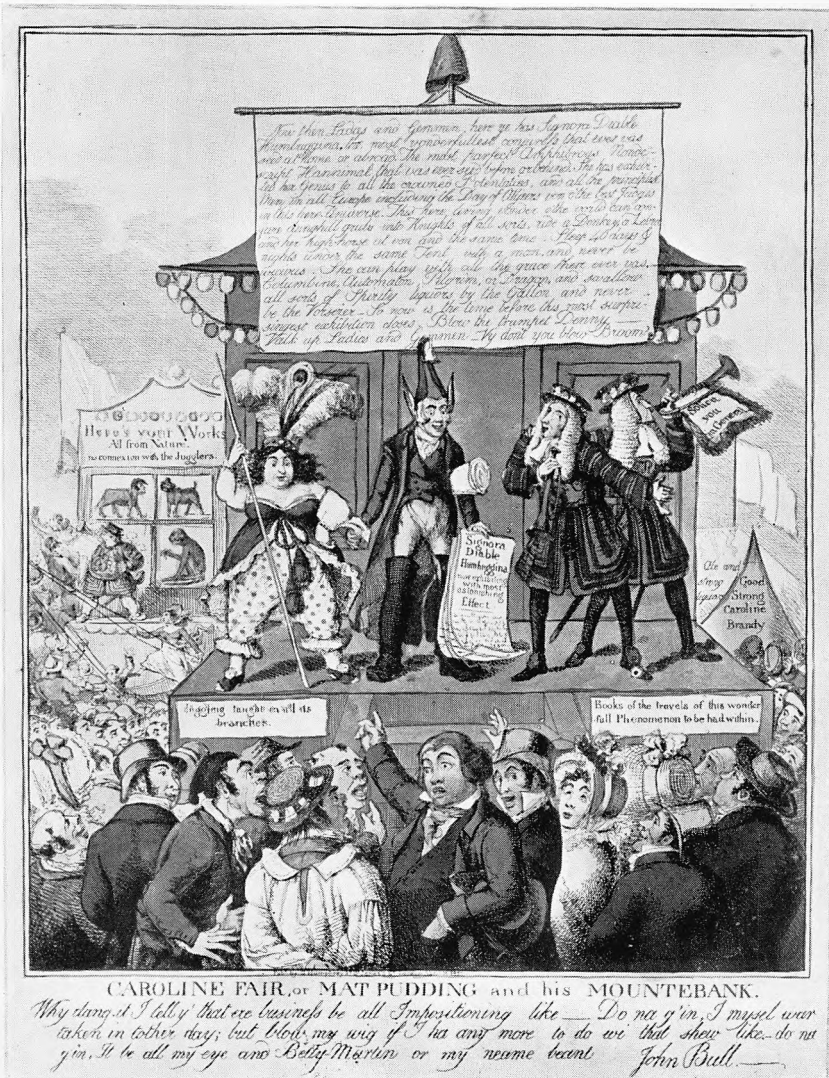 Now then Ladys and Gemmen, here ye has Signora Diable
Humbuggina, the most wonderfullest concern that ever vas
seed at home or abroad, The most parfect Amphibious Nonde-
script Hannimal that vas ever seed before or behind. She has exhibi-
ted her Genus to all the crowned Potentaties, and all the principal
in all Europe including the Day of Algiers vere the best Judges
in this here Universe. This here living vonder o the vorld can con-
jure dunghill grubs into Knights of all sorts, ride a Donkey, a Zebra
and her high-horse at von and the same time. Sleep 40 days &
nights under the same Tent with a man, and never be
. She can play with all the grace there ever vas,
Columbine, Automaton, Pilgrim, or Dragon, and swallow
all sorts of Spirity liquers by the Gallon and never
be the Vorserer. So now is the time before this most surpri-
singest exhibition closes, Blow the trumpet Denny
Valk up Ladies and Gemmen Vy dont you blow Broom?
Here's your Works
All from Nature.
no connexion with the Jugglers.
Signora
Diable
Humbuggina
now exhibiting
with most
astonishing
Effect
you
in General
Ale and
strong
liquors
Good
Strong
Caroline
Brandy
Juggling taught in all its
branches.
Books of the travels of this wonder
full Phenomenon to be had within.
CAROLINE FAIR, or MAT PUDDING and his MOUNTEBANK.
Why dang it I telly' that ere business be all Impositioning like — Do na g'in, I mysel war
taken in tother day; but blow my wig if I ha any more to do wi that shew like - do na
g'in, It be all my eye and Betty Martin or my neame beant John Bull.